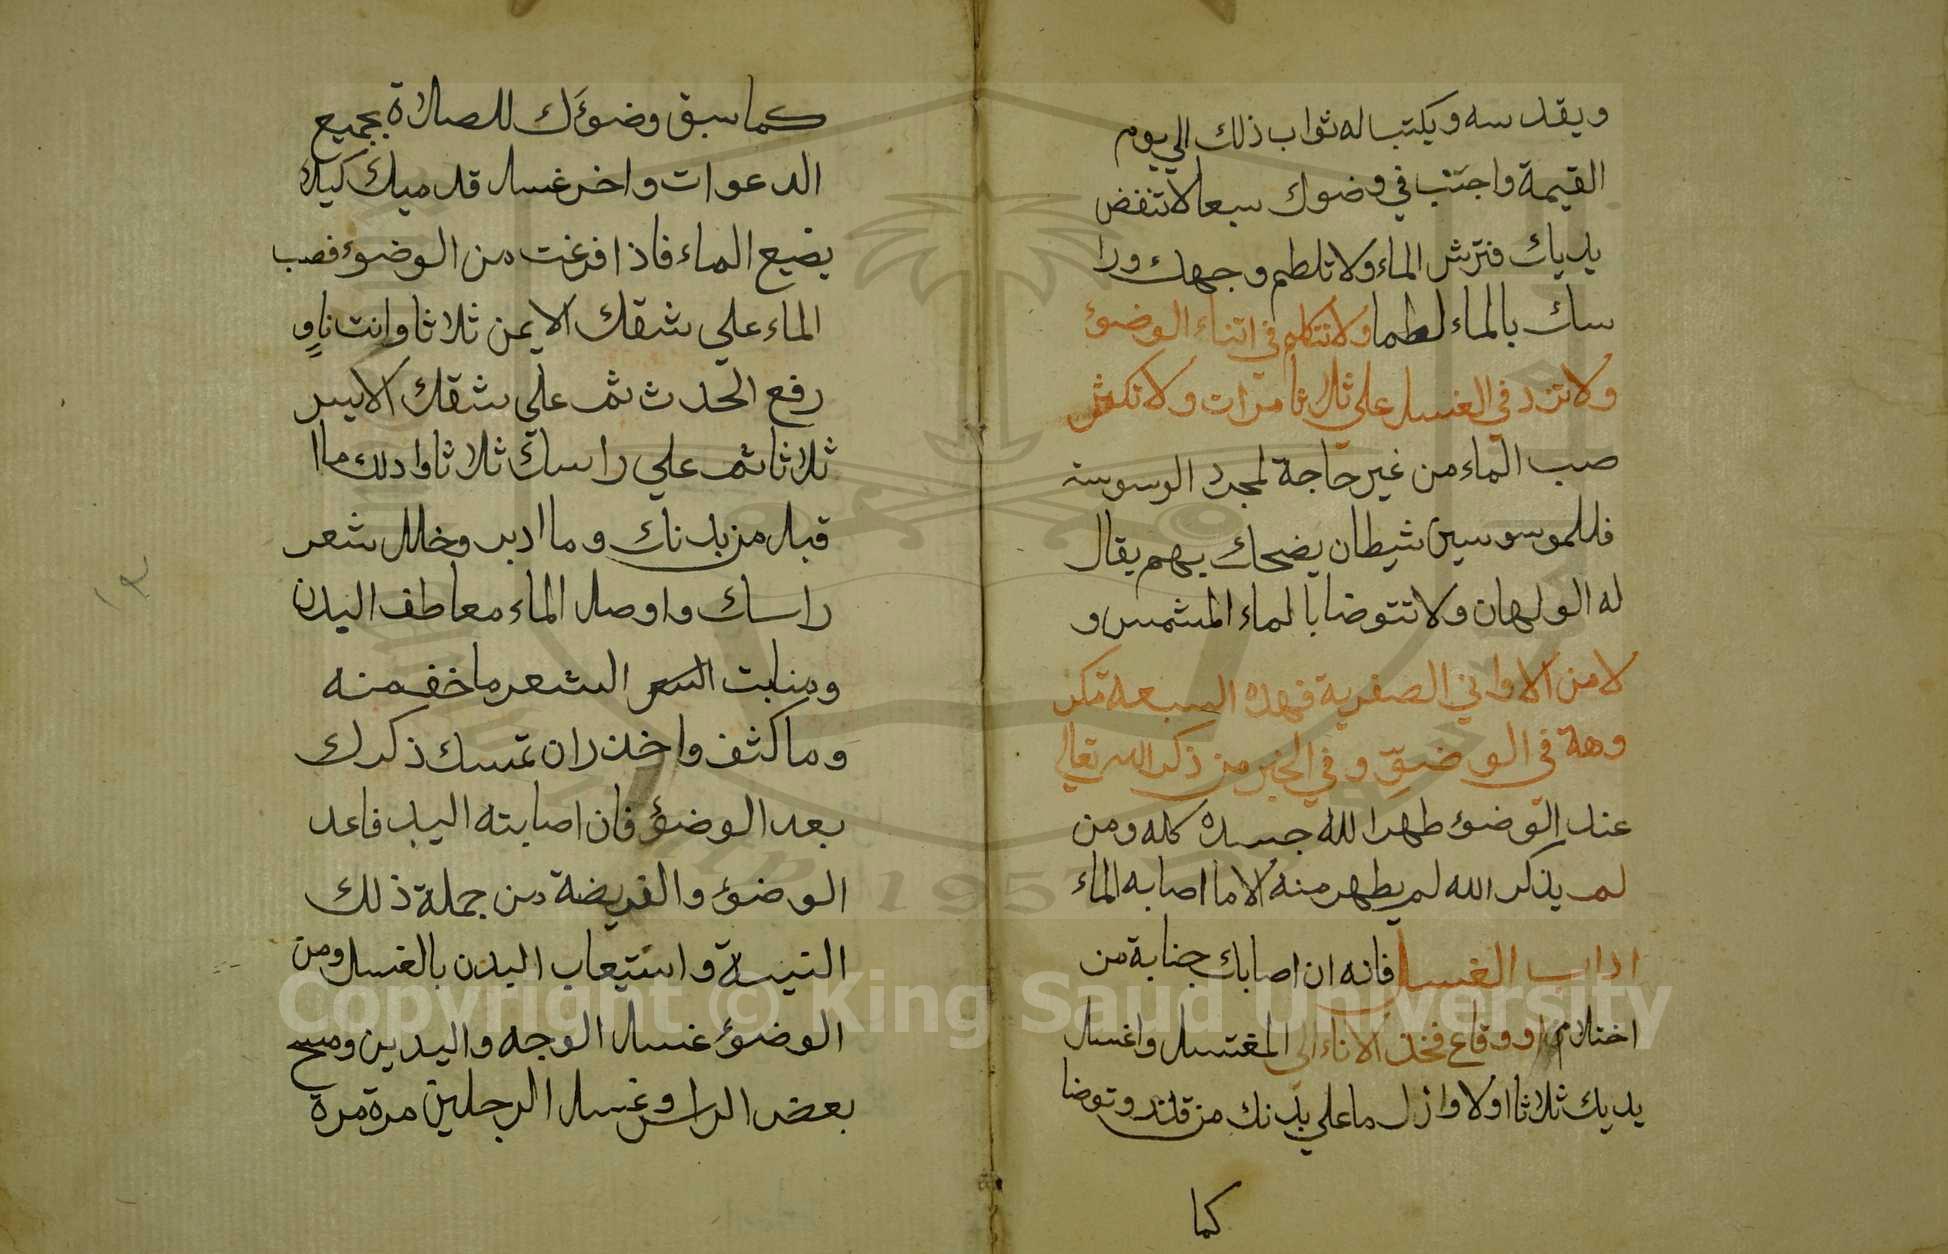 ويقدسه ويكتب له ثواب ذلك الي يوم
القيمة واجتنب في وضوك سبعا لا تنفض
يديك فترش الماء ولا تلطم وجهك ورا
سك بالماء لطما ولا تتكلم في اثناء الوضوء
ولا تزد في الغسل علي ثلاثا مرات ولا تكثر
صب الماء من غير حاجة لمجرد الوسوسة
فللموسوسين شيطان يضحك بهم يقال
له الولهان ولا تتوضا بالماء المشمس و
لا من الاواني الصفرية فهذه السبعة مكر
وهة في الوضوء وفي الخبر من ذكر الله تعالي
عند الوضوء طهر الله جسده كله ومن
لم يذكر الله لم يطهر منه الا ما اصابه الماء
اداب الغسل فانه ان اصابك جنابة من
احتلام او وقاع فخذ الاناء الي المغتسل واغسل
يديك ثلاثا اولا وازل ما على بدنك من قذر وتوضا
كما
كما سبق وضوءك للصلاة بجميع
الدعوات واخر غسل قدميك كيلا
يضيع الماء فاذا فرغت من الوضوء فصب
الماء علي شقك الايمن ثلاثا وانت ناوٍ
رفع الحدث ثم علي شقك الايسر
ثلاثا ثم علي راسك ثلاثا وادلك ما ا
قبل من بدنك وما ادبر وخلل شعر
راسك واوصل الماء معاطف البدن
ومنابت الشعر ما خف منه
وما كثف واحذر ان تمسك ذكرك
بعد الوضوء فان اصابته اليد فاعد
الوضوء والفريضة من جملة ذلك
النية واستيعاب البدن بالغسل ومن
الوضوء غسل الوجه واليدين ومسح
بعض الراس وغسل الرجلين مرة مرة
Copyright © King Saud University